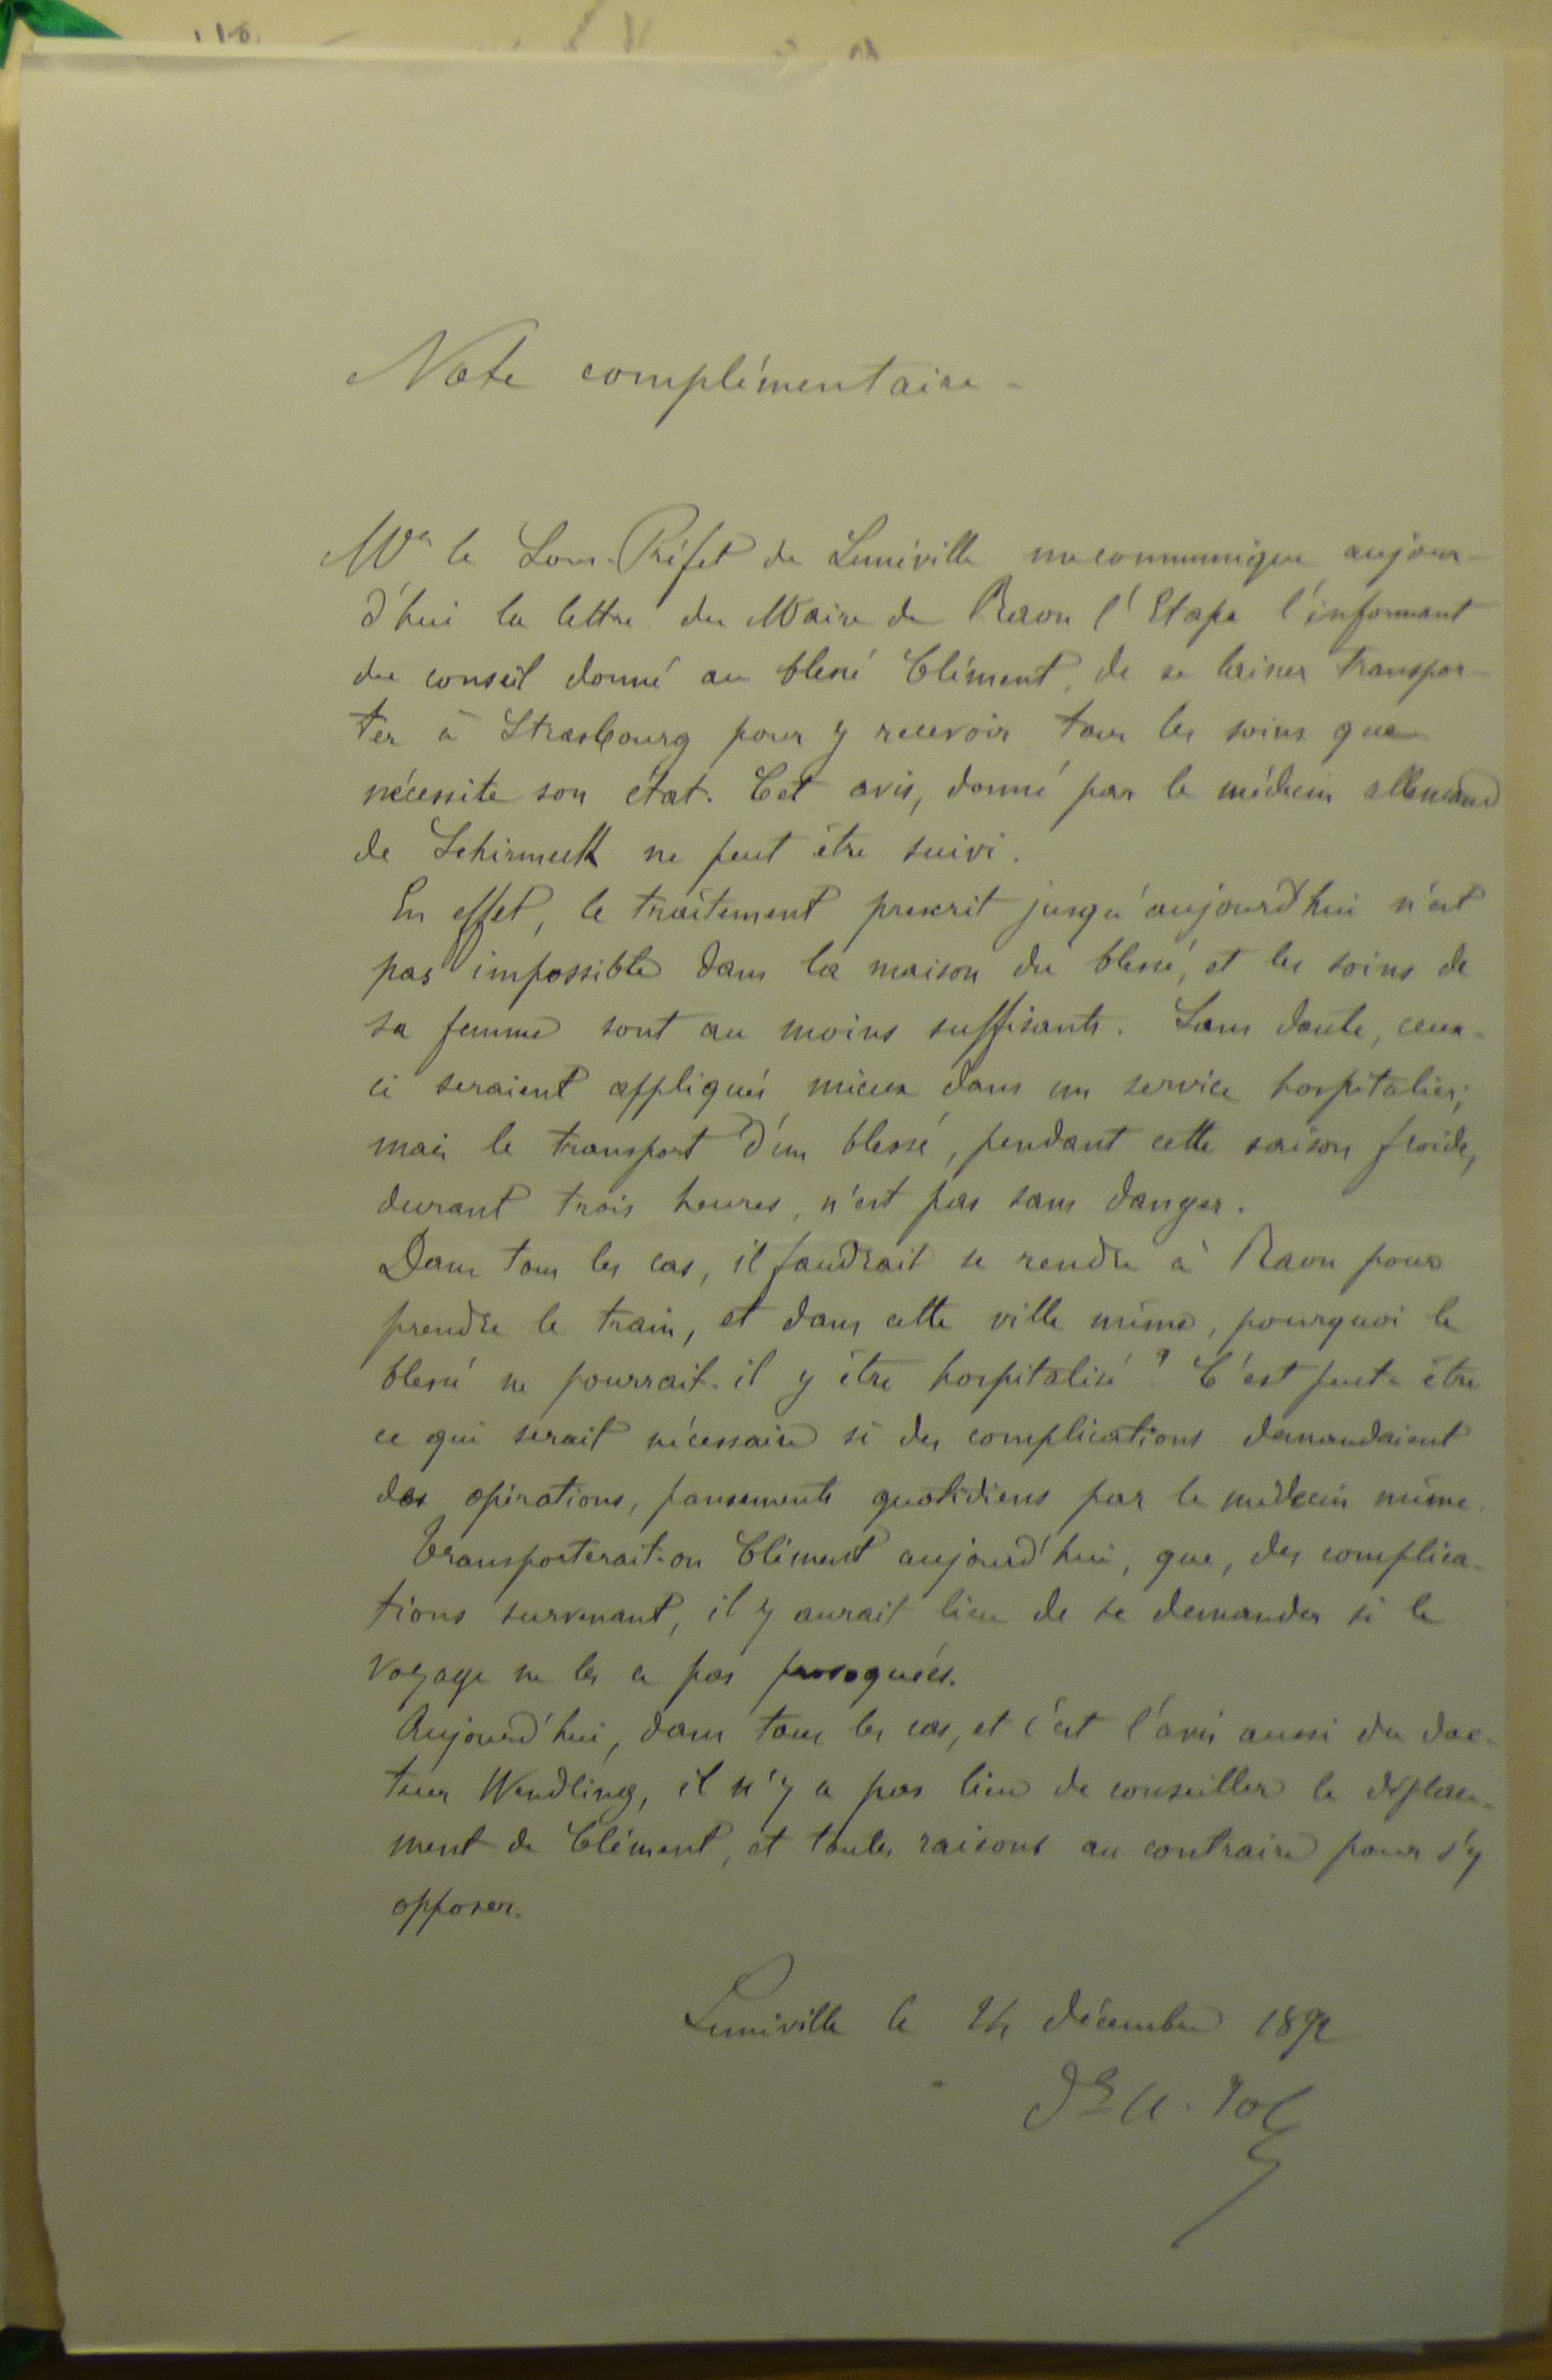 Note complémentaire -
Mr le Sous-Préfet de Lunéville me communique aujour-
d'hui la lettre du Maire de Raon l'Etape l'informant
du conseil donné au blessé Clément, de se laisser transpor-
ter à Strasbourg pour y recevoir tous les soins que
nécessite son état. Cet avis, donné par le médecin allemand
de Schirmeck ne peut être suivi.
En effet, le traitement prescrit jusqu'aujourd'hui n'est
pas impossible dans la maison du blessé, et les soins de
sa femme sont au moins suffisants. Sans doute, ceux-
ci seraient appliqués mieux dans un service hospitalier;
mais le transport d'un blessé, pendant cette saison froide,
durant trois heures, n'est pas sans danger.
Dans tous les cas, il faudrait se rendre à Raon pour
prendre le train, et dans cette ville même, pourquoi le
blessé ne pourrait-il y être hospitalisé? C'est peut-être
ce qui serait nécessaire si des complications demandaient
des opérations, pansements quotidiens par le médecin même.
Transporterait-on Clément aujourd'hui, que, des complica-
tions survenant, il y aurait lieu de se demander si le
voyage ne les a pas provoquées.
Aujourd'hui, dans tous les cas, et c'est l'avis aussi du doc-
teur Wendling, il n'y a pas lieu de conseiller le déplace-
ment de Clément, et toutes raisons au contraire pour s'y
opposer.
Lunéville le décembre
Dr A.